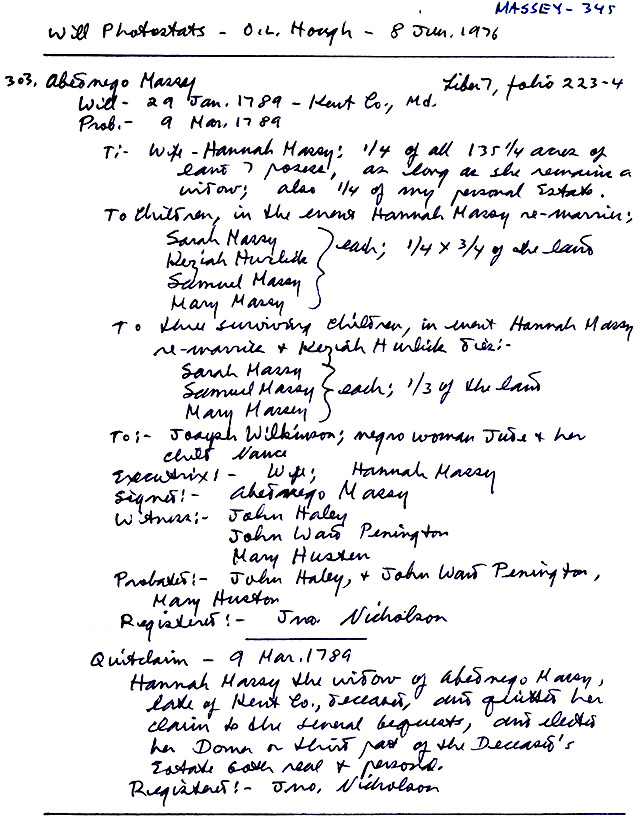 MASSEY-345
Will Photostats - O.L. Hough - 8 Jun. 1976
303. Abednego Massy Liber 7, folio 223-4
Will - 29 Jan. 1789 - Kent Co., Md.
Prob. - 9 Mar. 1789
To:- Wife - Hannah Massy; 1/4 of all 135 1/4 acres of
land I posess, as long as she remains a
widow; also 1/4 of my personal Estate.
To Children, in the event Hannah Massy re-marries;
Sarah Massy
Keziah Hurlick
Samuel Massy
Mary Massy
each; 1/4 x 3/4 of the land
To three surviving children, in event Hannah Massy
re-marries & Keziah Hurlick dies:-
Sarah Massy
Samuel Massy
Mary Massey
each; 1/3 of the land
To:- Joseph Wilkinson; negro woman Jude & her
child Nance
Executrix:- Wife; Hannah Massy
Signed:- Abednego Massy
Witness:- John Haley
John Ward Penington
Mary Husten
Probated:- John Haley, & John Ward Penington,
Mary Huston
Registered:- Jno. Nicholson
Quitclaim - 9 Mar. 1789
Hannah Massy the widow of Abednego Massy,
late of Kent Co., deceased, and quitted her
claim to the several bequests, and elects
her Dower or third part of the Deceased's
Estate both real & personal.
Registered:- Jno. Nicholson